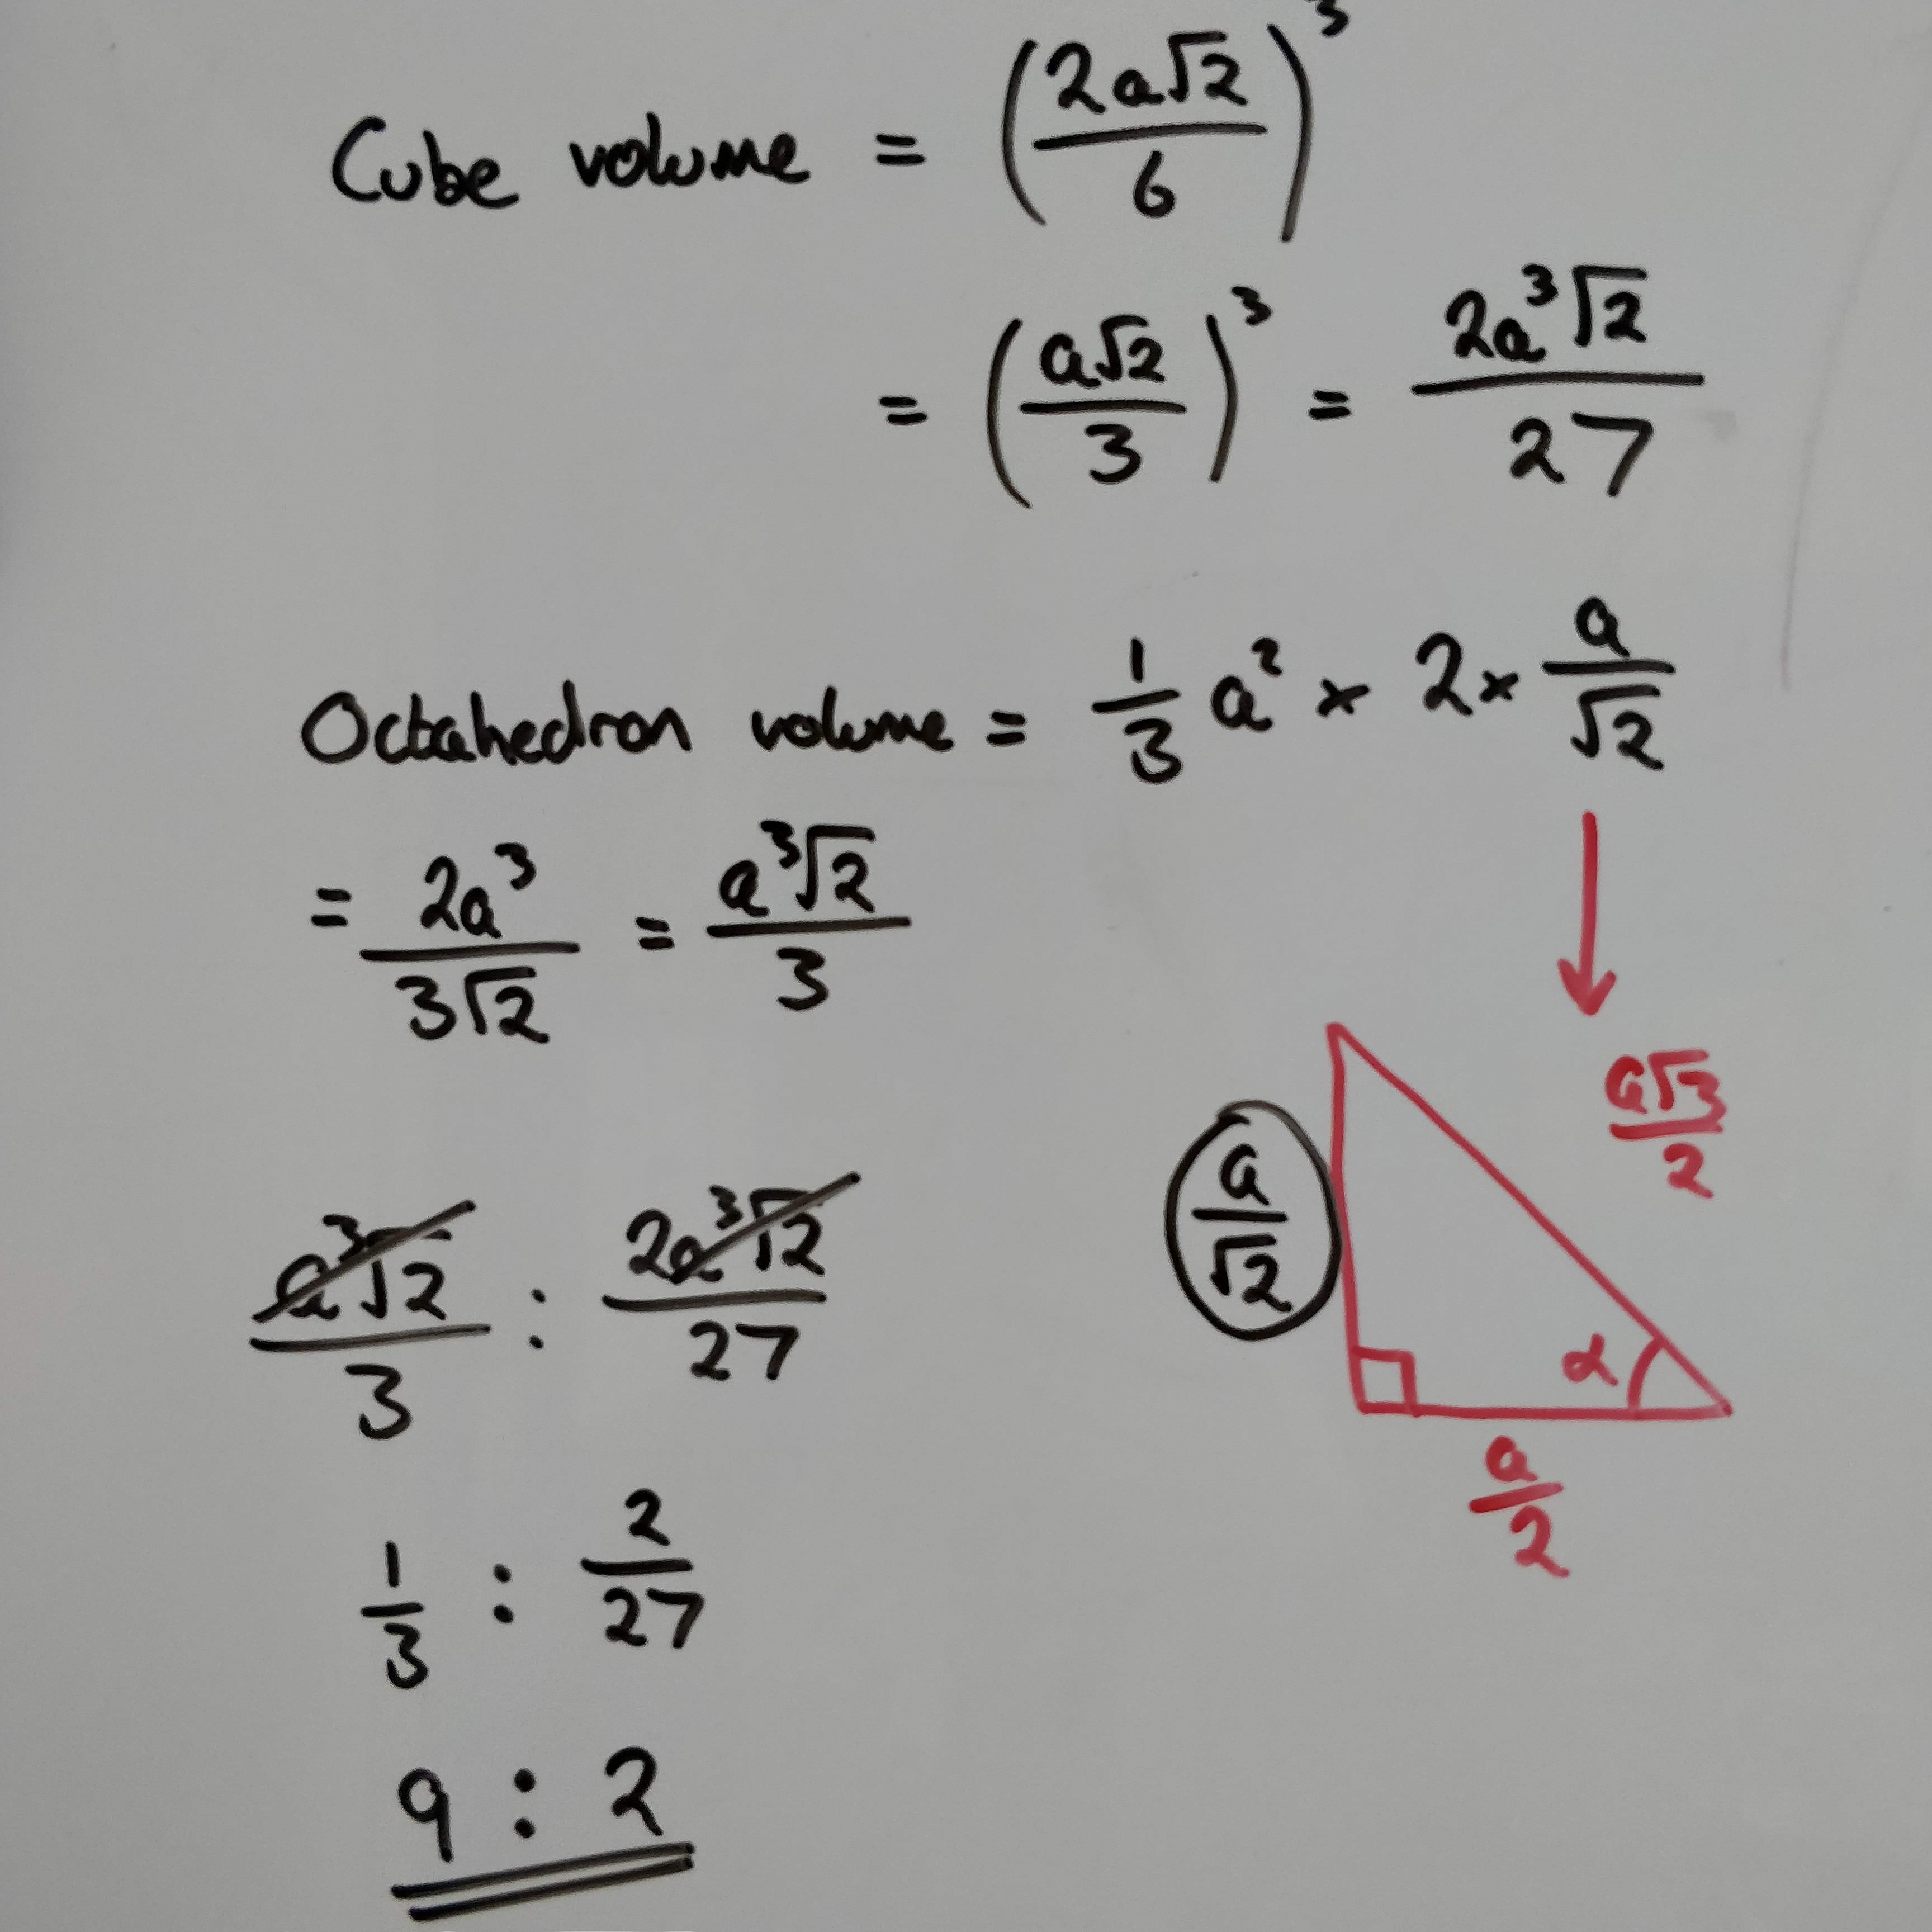 Cube volume = (2a√2/6)³
= (a√2/3)³ = 2a³√2/27
Octahedron volume = 1/3 a² × 2 × a/√2
= 2a³/3√2 = a³√2/3
a√3/2
a/√2
a³√2/3 : 2a³√2/27
α
a/2
1/3 : 2/27
9 : 2